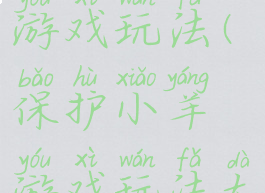 yóu xì wán fǎ
游戏玩法(
bǎo hù xiǎo yáng
保护小羊
yóu xì wán fǎ dà
游戏玩法大